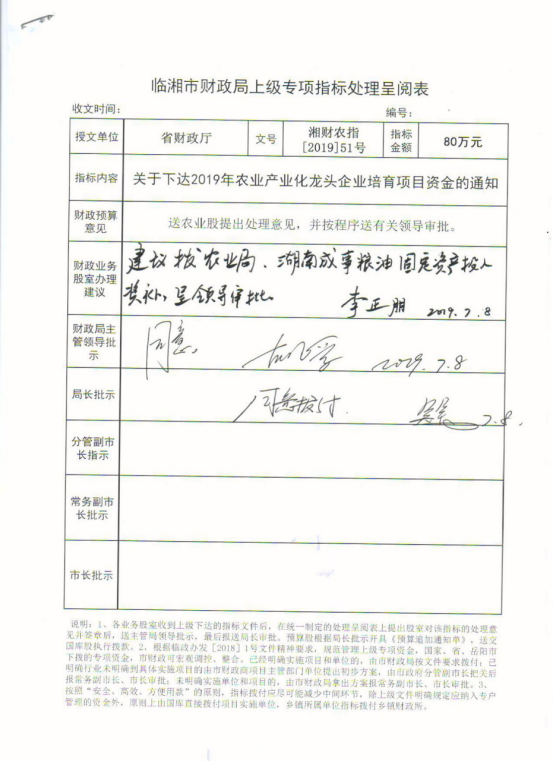 临湘市财政局上级专项指标处理呈阅表
收文时间： 编号：
授文单位 省财政厅 文号 湘财农指[2019]51号 指标金额 80万元
指标内容 关于下达2019年农业产业化龙头企业培育项目资金的通知
财政预算意见 送农业股提出处理意见，并按程序送有关领导审批。
财政业务股室办理建议
建议拨农业局、湖南成事粮油固定资产投入
奖补，呈领导审批。
李正朋 2019.7.8
财政局主管领导批示 同意。 2019.7.8
局长批示 同意拨付. 7.8.
分管副市长指示
常务副市长批示
市长批示
说明：1、各业务股室收到上级下达的指标文件后，在统一制定的处理呈阅表上提出股室对该指标的处理意
见并签章后，送主管局领导批示，最后报送局长审批。预算股根据局长批示开具《预算追加通知单》，送交
国库股执行拨款。2、根据临政办发［2018］1号文件精神要求，规范管理上级专项资金，国家、省、岳阳市
下拨的专项资金，市财政可宏观调控、整合。已经明确实施项目和单位的，由市财政局按文件要求拨付；已
明确行业未明确到具体实施项目的由市财政商项目主管部门单位提出初步方案，由市政府分管副市长把关后
报常务副市长、市长审批；未明确实施单位和项目的，由市财政局拿出方案报常务副市长、市长审批。3、
按照“安全、高效、方便用款”的原则，指标拨付应尽可能减少中间环节，除上级文件明确规定应纳入专户
管理的资金外，原则上由国库直接拨付项目实施单位，乡镇所属单位指标拨付乡镇财政所。